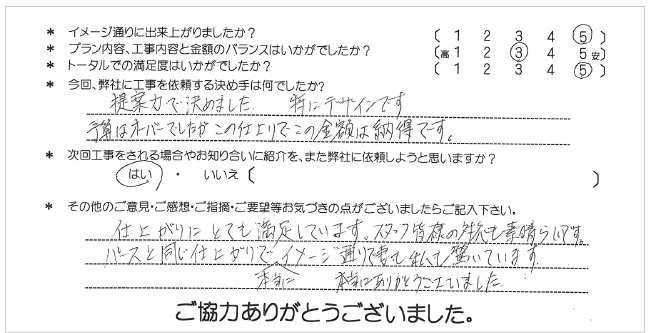 * イメージ通りに出来上がりましたか? [ 1 2 3 4 5 ]
* プラン内容、工事内容と金額のバランスはいかがでしたか? [高 1 2 3 4 5 安]
* トータルでの満足度はいかがでしたか? [ 1 2 3 4 5 ]
* 今回、弊社に工事を依頼する決め手は何でしたか?
提案力で決めました。 特にデザインです
予算はオーバーでしたがこの仕上りでこの金額は納得です。
* 次回工事をされる場合やお知り合いに紹介を、また弊社に依頼しようと思いますか?
はい ・ いいえ [ ]
* その他のご意見・ご感想・ご指摘・ご要望等お気づきの点がございましたらご記入下さい。
仕上がりにとても満足しています。スタッフ皆様の対応も素晴らしいです。
パースと同じ仕上がりで、イメージ通りで妻も私も驚いています。
本当に 本当にありがとうございました。
ご協力ありがとうございました。